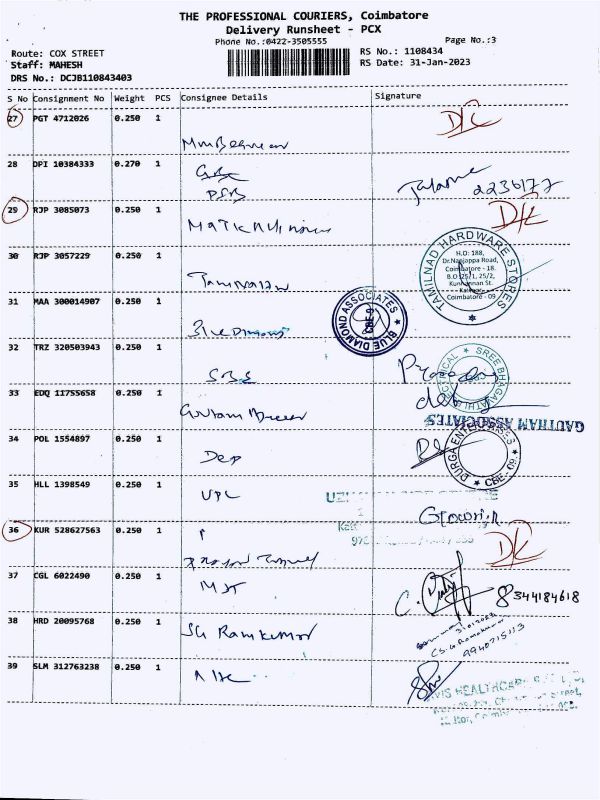 THE PROFESSIONAL COURIERS, Coimbatore
Delivery Runsheet - PCX
Phone No.:0422-3505555
Page No.:3
Route: COX STREET
Staff: MAHESH
DRS No.: DCJB110843403
RS No.: 1108434
RS Date: 31-Jan-2023
S No Consignment No Weight PCS Consignee Details Signature
27 PGT 4712026 0.250 1
D/L
28 DPI 10384333 0.270 1
2236177
29 RJP 3085073 0.250 1
D/L
30 RJP 3057229 0.250 1
TAMILNAD HARDWARE STORES
H.O: 188,
Dr.Nanjappa Road,
Coimbatore - 18.
B.O: 25/1, 25/2,
Kunnannan St.
Coimbatore - 09
31 MAA 300014907 0.250 1
Blue Diamond
BLUE DIAMOND ASSOCIATES
CBE-9
32 TRZ 320503943 0.250 1
SBS
33 EDQ 11755658 0.250 1
GAUTHAM ASSOCIATES
34 POL 1554897 0.250 1
Dep
DURGA ENTERPRISES
CBE - 09.
35 HLL 1398549 0.250 1
UPL
Gowri.R
36 KUR 528627563 0.250 1
D/L
37 CGL 6022490 0.250 1
MJT
8344184618
38 HRD 20095768 0.250 1
SG Ramkumar
31/01/2023
9940715113
39 SLM 312763238 0.250 1
HEALTHCARE